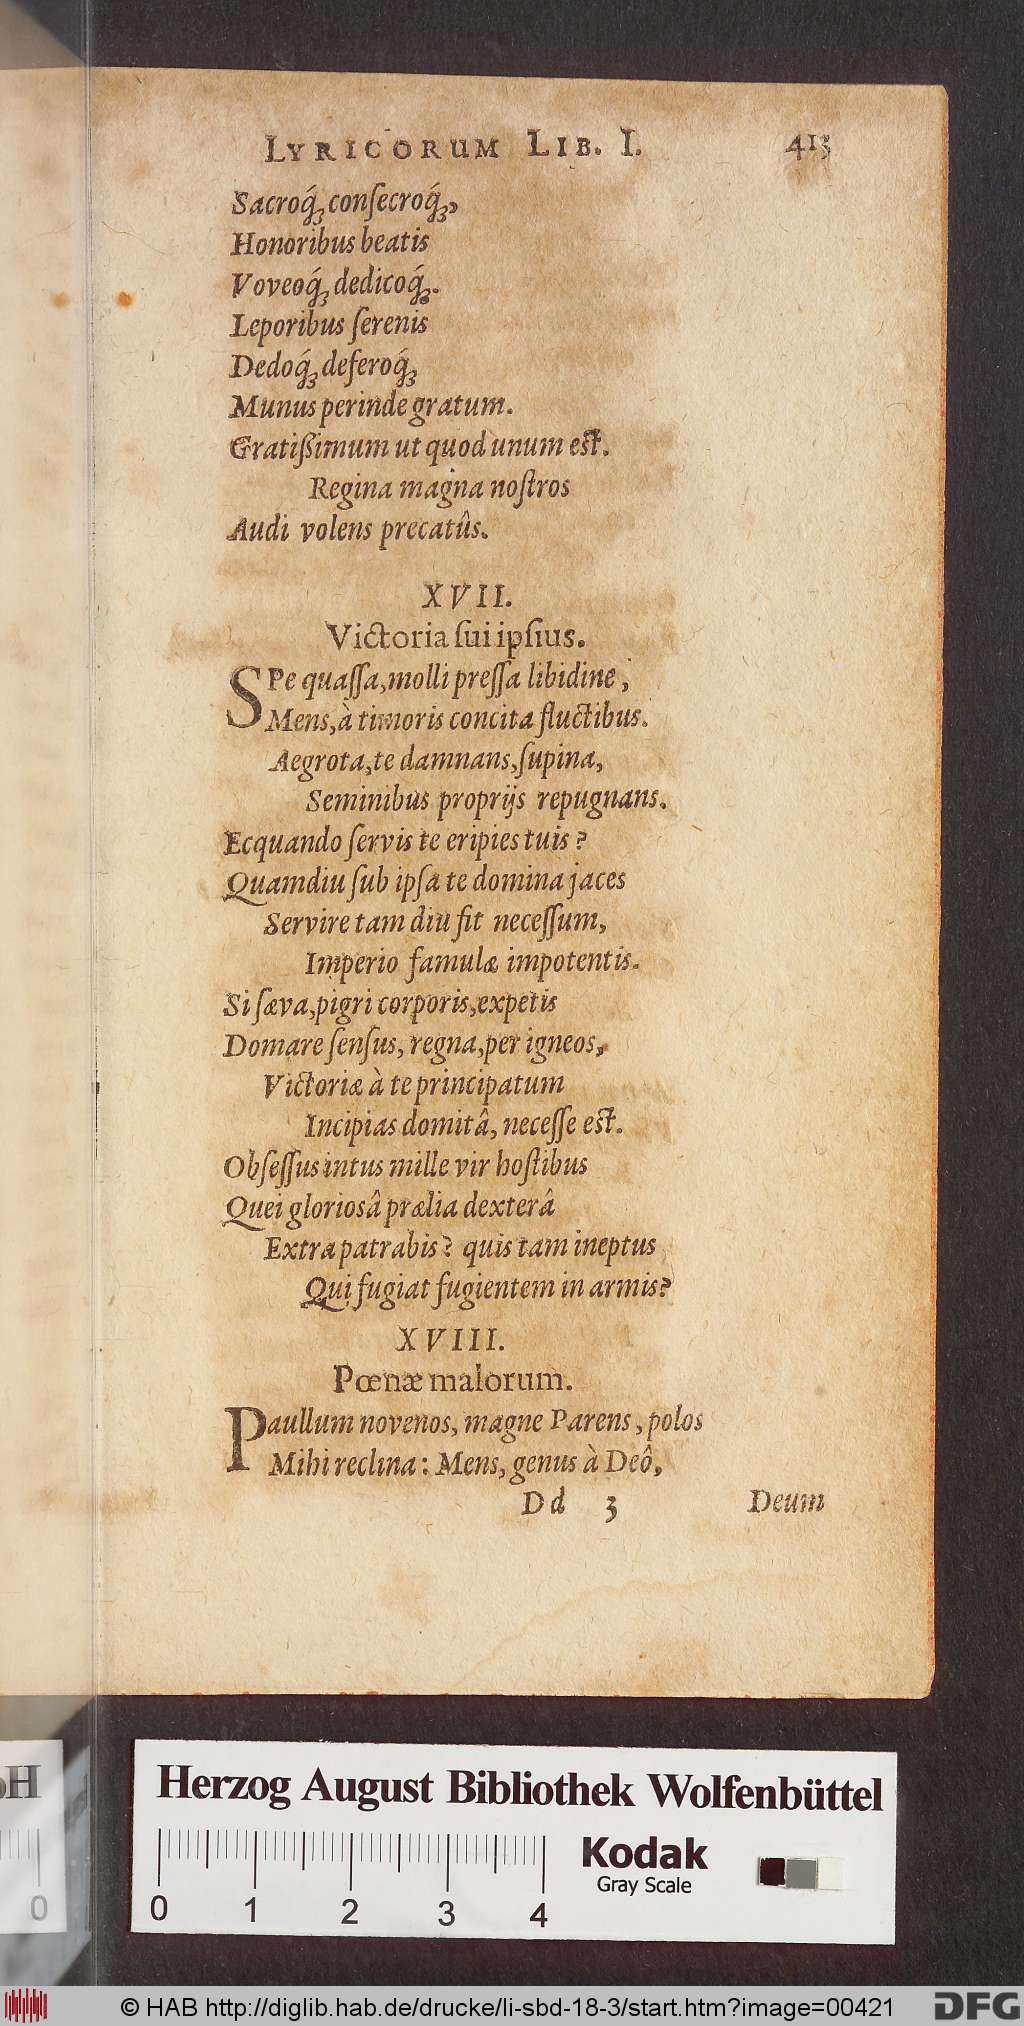 LYRICORUM LIB. I. 413
Sacroq́ꝫ conſecroq́ꝫ,
Honoribus beatis
Voveoq́ꝫ dedicoq́ꝫ.
Leporibus ſerenis
Dedoq́ꝫ deferoq́ꝫ
Munus perinde gratum.
Gratißimum ut quod unum est.
Regina magna noſtros
Audi volens precatûs.
XVII.
Victoria ſui ipſius.
SPe quaſſa, molli preſſa libidine,
Mens, à timoris concita fluctibus.
Aegrota, te damnans, ſupina,
Seminibus proprijs repugnans.
Ecquando ſervis te eripies tuis?
Quamdiu ſub ipſa te domina jaces
Servire tam diu fit neceſſum,
Imperio famulæ impotentis.
Si ſæva, pigri corporis, expetis
Domare ſenſus, regna, per igneos,
Victoriæ à te principatum
Incipias domitâ, neceſſe est.
Obſeſſus intus mille vir hoſtibus
Quei glorioſâ prælia dexterâ
Extra patrabis? quis tam ineptus
Qui fugiat fugientem in armis?
XVIII.
Pœnæ malorum.
PAullum novenos, magne Parens, polos
Mihi reclina: Mens, genus à Deô,
Dd 3 Deum
Herzog August Bibliothek Wolfenbüttel
Kodak
Gray Scale
0 1 2 3 4
H
0
© HAB http://diglib.hab.de/drucke/li-sbd-18-3/start.htm?image=00421
DFG